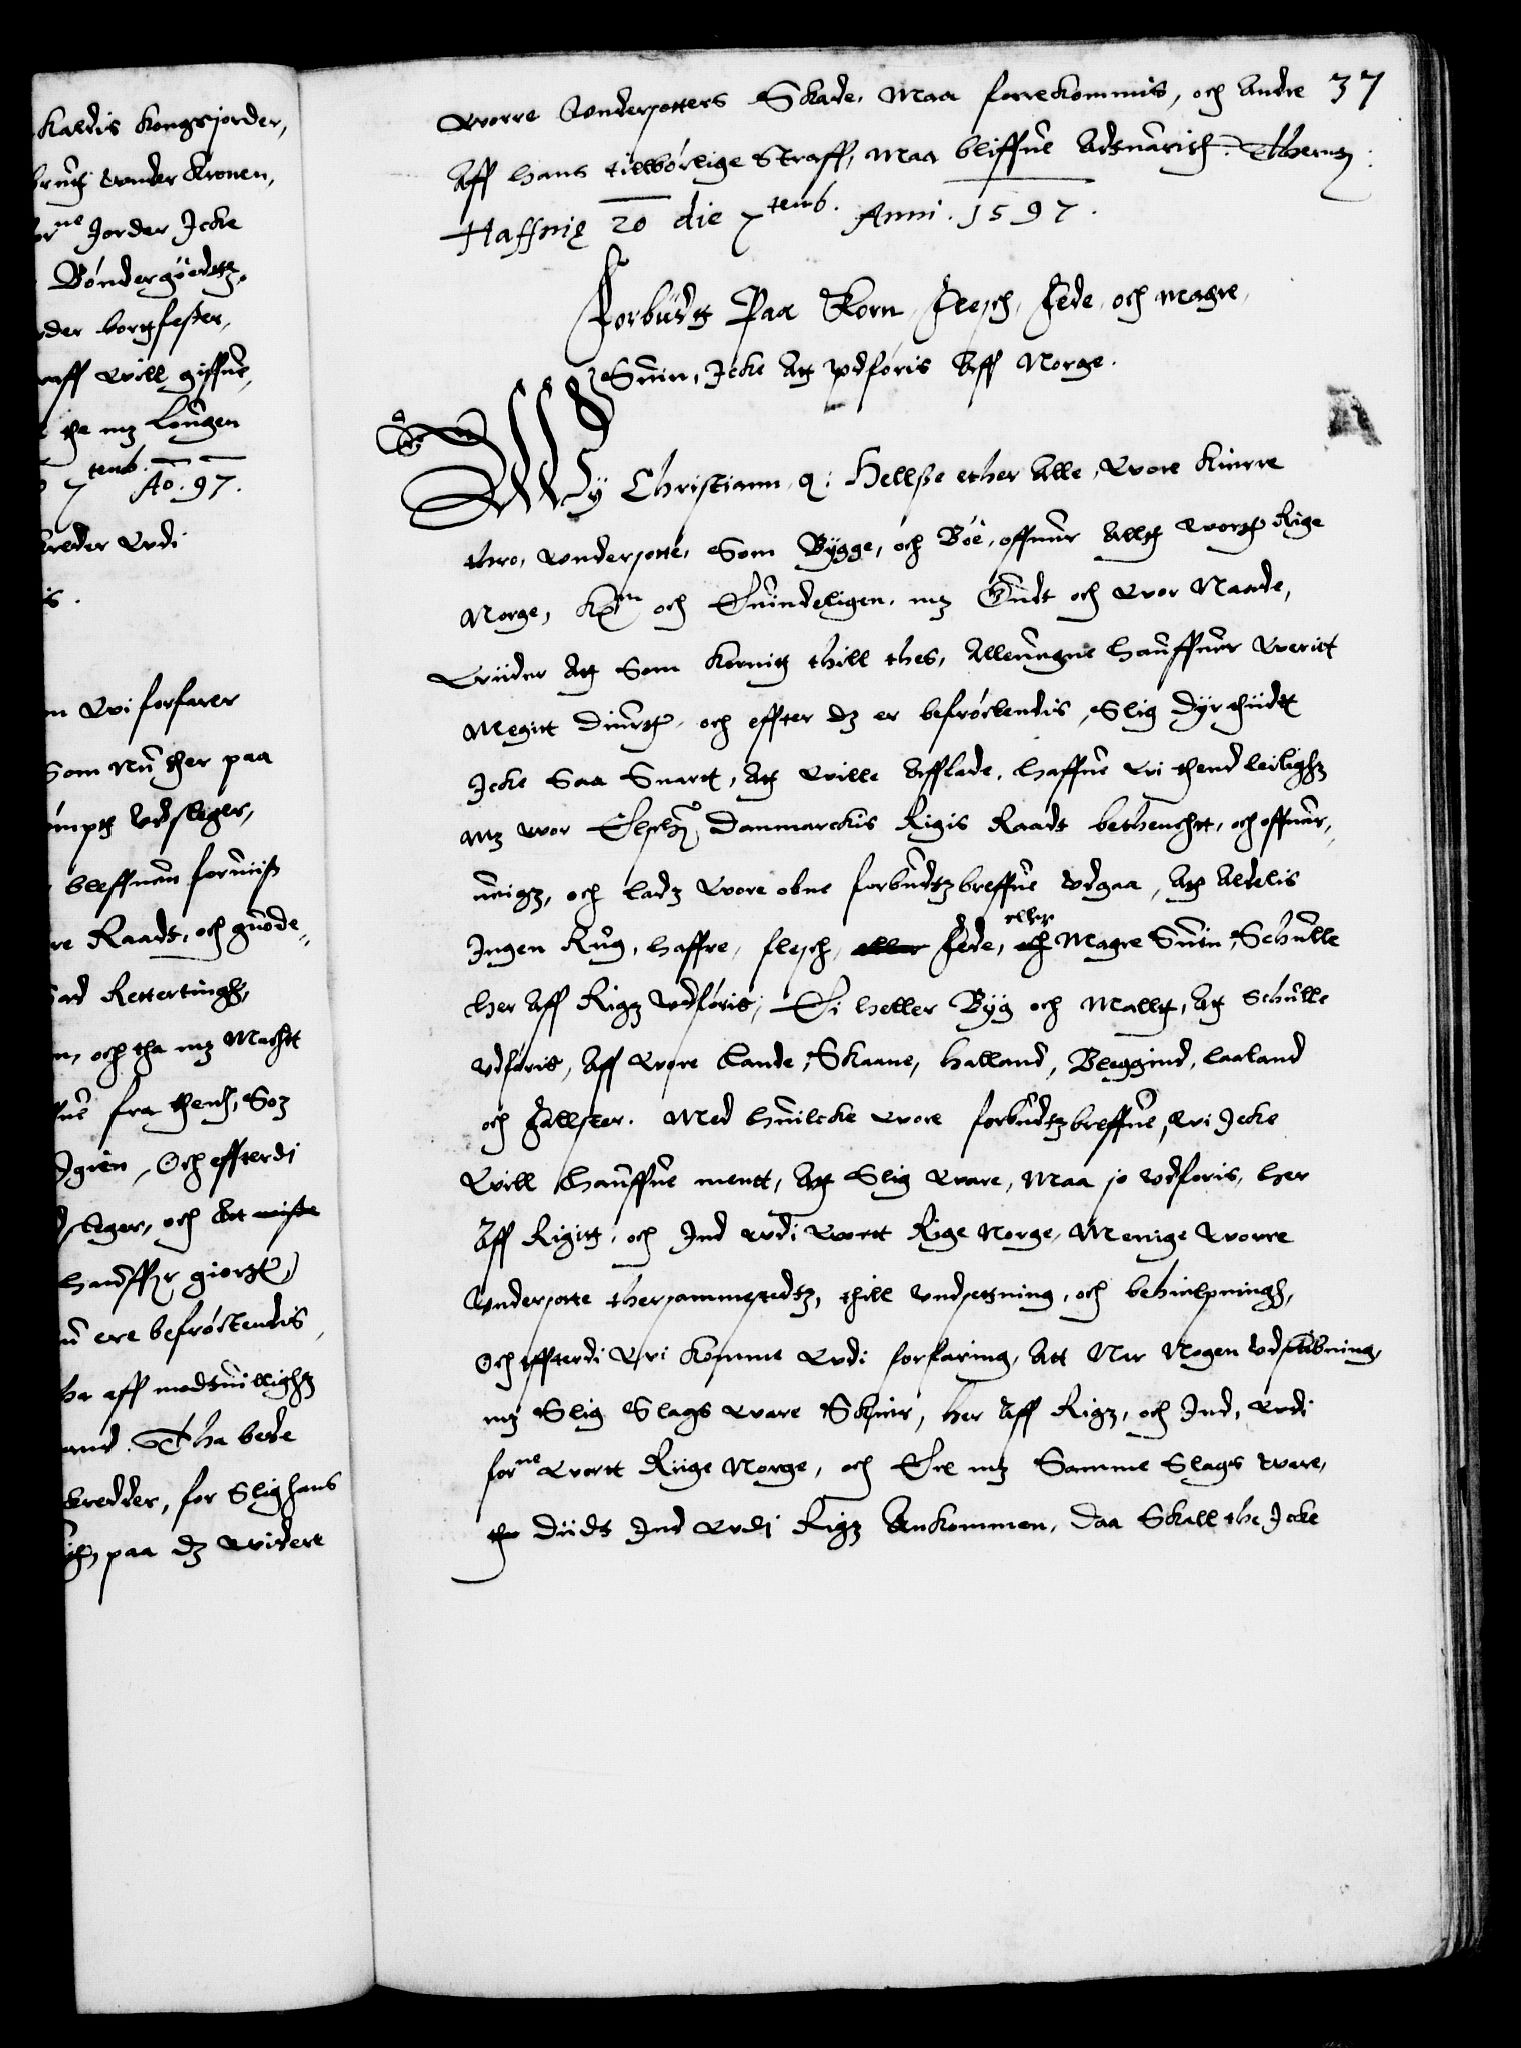 Kaldis Kongsjorder,
brug wnder Kronen,
forne Jorder Icke
Bøndergodtz,
rder bortfester,
raff will giffue,
the mz Lougen
7temb. Ao. 97.
breder wdi
is.
m wi forfarer
Som Nu ther paa
ømpth Vdsteger,
bleffuen foruiist
re Raadt, och guode,,
ad Rettertingh,
n, och tha mz Machtt
fue fra thend, Soz
Igien, Och effterdi
d steger, och Att miste
haffr giortt,
u ere befrøctendis
ha aff modtuillighz
and. Tha bede
breder, for Slig hans
paa dz widere
37
Worre Wndersotters Skade, Maa forrekommis, och Andre
Aff hans tilbørlige Straff, Maa bliffue Aduarith. Thertz
Haffnię 20 die 7temb. Anni. 1597.
Forbudt Paa Korn, Flesch, Fede, och magre,
Suin, Icke At wdføris Aff Norge.
Wy Christiann q: Hellsse ether Alle, Wore Kierre
thro, wndersotte, Som Bygge, och Boe, offuer Alltt Wortt Rige
Norge, Kierlig och Suindeligen, mz Gudt och Wor Naade,
Wiider At Som Kornitt thill thes, Alleuegne hauffuer Weritt
Megitt Diurtt, och effter dz er befrøctendis, Slig dyrthiidt
Icke Saa Snartt, At Wille Afflade, haffue wi thend leilighz
mz wor Elschz Danmarckis Rigis Raadt bethenchtt, och offuer,,
ueigz, och ladz Wore obne forbudtzbreffue Vdgaa, At Aldelis
Ingen Rug, haffre, flesch, eller Fede, och eller Magre Suin, Schulle
her Aff Rigz Vdføris, Ei heller Byg och Mallt, At Schulle
vdføris, Aff Wore Lande, Skaane, Halland, Bleggind, Laaland
och Fallster. Med huilcke Wore forbudtzbreffue, wi Icke
Will Hauffue mentt, At Slig Ware, Maa jo Vdføris, her
Aff Rigitt, och Ind wdi Wortt Rige Norge, Menige Worre
Wndersotte thersammestedtz, thill Vndsettning, och behielpningh,
Och effterdi Wi komme Wdi forfaring, Att Nar Nogen Vdschibning,
mz Slig Slags Ware Skeer, her Aff Rigz, och Ind, Wdi
forne Wortt Riige Norge, och Ere mz Samme Slags Ware,
the Diidt Ind Wdi Rigz Ankommen, Daa Skall the Icke